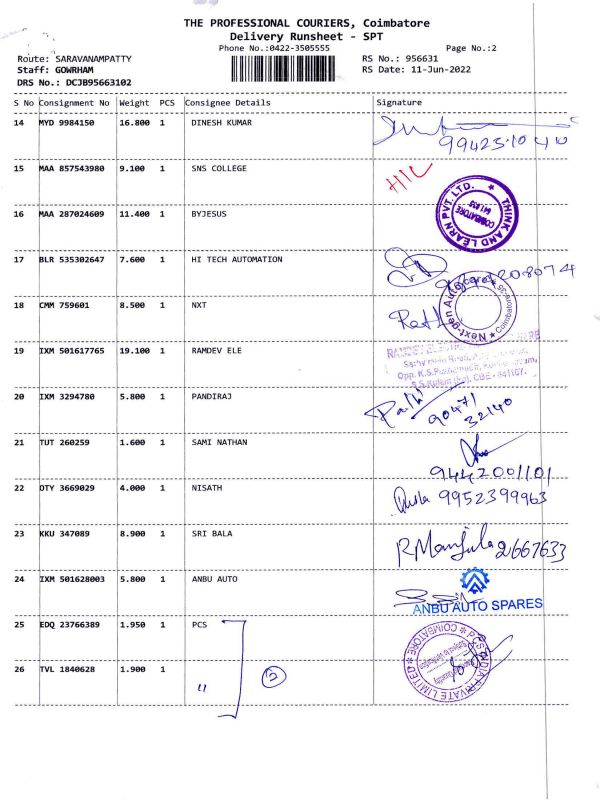 THE PROFESSIONAL COURIERS, Coimbatore
Delivery Runsheet - SPT
Phone No.:0422-3505555
Page No.:2
Route: SARAVANAMPATTY
RS No.: 956631
Staff: GOWRHAM
RS Date: 11-Jun-2022
DRS No.: DCJB95663102
S No Consignment No Weight PCS Consignee Details Signature
14 MYD 9984150 16.800 1 DINESH KUMAR
15 MAA 857543980 9.100 1 SNS COLLEGE
16 MAA 287024609 11.400 1 BYJESUS THINK AND LEARN PVT. LTD. COIMBATORE
17 BLR 535302647 7.600 1 HI TECH AUTOMATION
18 CMM 759601 8.500 1 NXT Next-gen Coimbatore-35
19 IXM 501617765 19.100 1 RAMDEV ELE
20 IXM 3294780 5.800 1 PANDIRAJ 90471
32140
21 TUT 260259 1.600 1 SAMI NATHAN
9442001101
22 OTY 3669029 4.000 1 NISATH 9952399963
23 KKU 347089 8.900 1 SRI BALA R Manjula 2667633
24 IXM 501628003 5.800 1 ANBU AUTO
ANBU AUTO SPARES
25 EDQ 23766389 1.950 1 PCS
26 TVL 1840628 1.900 1 " 2
PCS INDIA PRIVATE LIMITED COIMBATORE